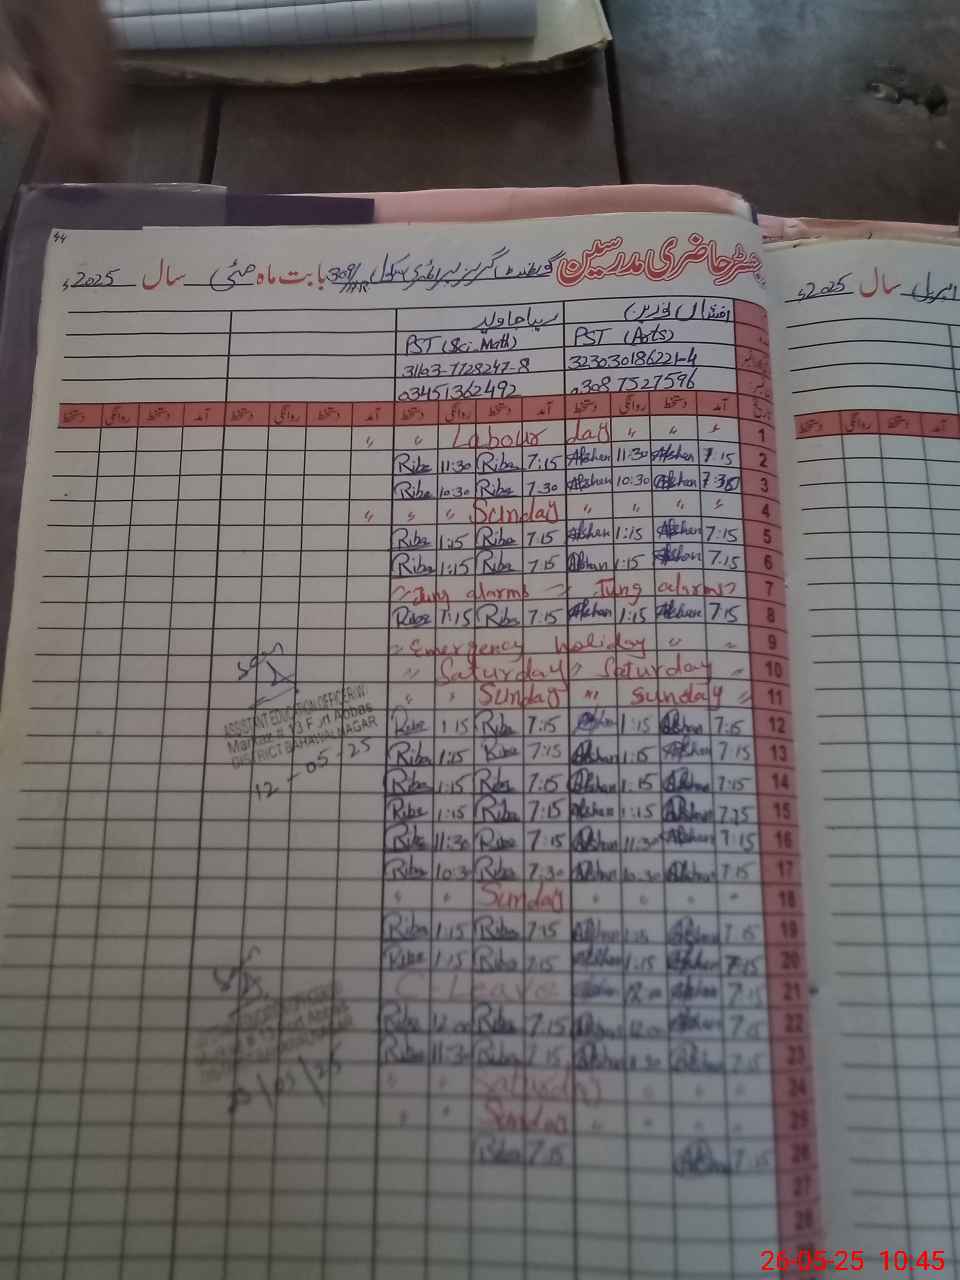 رجسٹر حاضری مدرسین گورنمنٹ گرلز پرائمری سکول 309/HR بابت ماہ مئی سال 2025ء
44
سال 2025ء اپریل
PST (Arts) PST (Sci. Math)
323030186221-4 31103-7728247-8
0308 7527596 03451362492
تاریخ آمد دستخط روانگی دستخط آمد دستخط روانگی دستخط آمد دستخط روانگی دستخط آمد دستخط روانگی دستخط
آمد دستخط روانگی دستخط
1 Labour day
2 7:15 Afshan 11:30 Afshan 7:15 Riba 11:30 Riba
3 7:30 Afshan 10:30 Afshan 7:30 Riba 10:30 Riba
4 Sunday
5 7:15 Afshan 1:15 Afshan 7:15 Riba 1:15 Riba
6 7:15 Afshan 1:15 Afshan 7:15 Riba 1:15 Riba
7 Jung alarms Jung alarms
8 7:15 Afshan 1:15 Afshan 7:15 Riba 1:15 Riba
9 Emergency holiday
10 Saturday Saturday
11 Sunday Sunday
12 7:15 Afshan 1:15 Afshan 7:15 Riba 1:15 Riba
13 7:15 Afshan 1:15 Afshan 7:15 Riba 1:15 Riba
14 7:15 Afshan 1:15 Afshan 7:15 Riba 1:15 Riba
15 7:15 Afshan 1:15 Afshan 7:15 Riba 1:15 Riba
16 7:15 Afshan 11:30 Afshan 7:15 Riba 11:30 Riba
17 7:15 Afshan 10:30 Afshan 7:30 Riba 10:30 Riba
18 Sunday
19 7:15 Afshan 1:15 Afshan 7:15 Riba 1:15 Riba
20 7:15 Afshan 1:15 Afshan 7:15 Riba 1:15 Riba
21 7:15 Afshan 12:00 Afshan C-Leave
22 7:15 Afshan 12:00 Afshan 7:15 Riba 12:00 Riba
23 7:15 Afshan 11:30 Afshan 7:15 Riba 11:30 Riba
24 Saturday
25 Sunday
26 7:15 Afshan 7:15 Riba
27
28
ASSISTANT EDUCATION OFFICER(W)
Markaz # 13 Fort Abbas
DISTRICT BAHAWALNAGAR
12-05-25
26-05-25 10:45